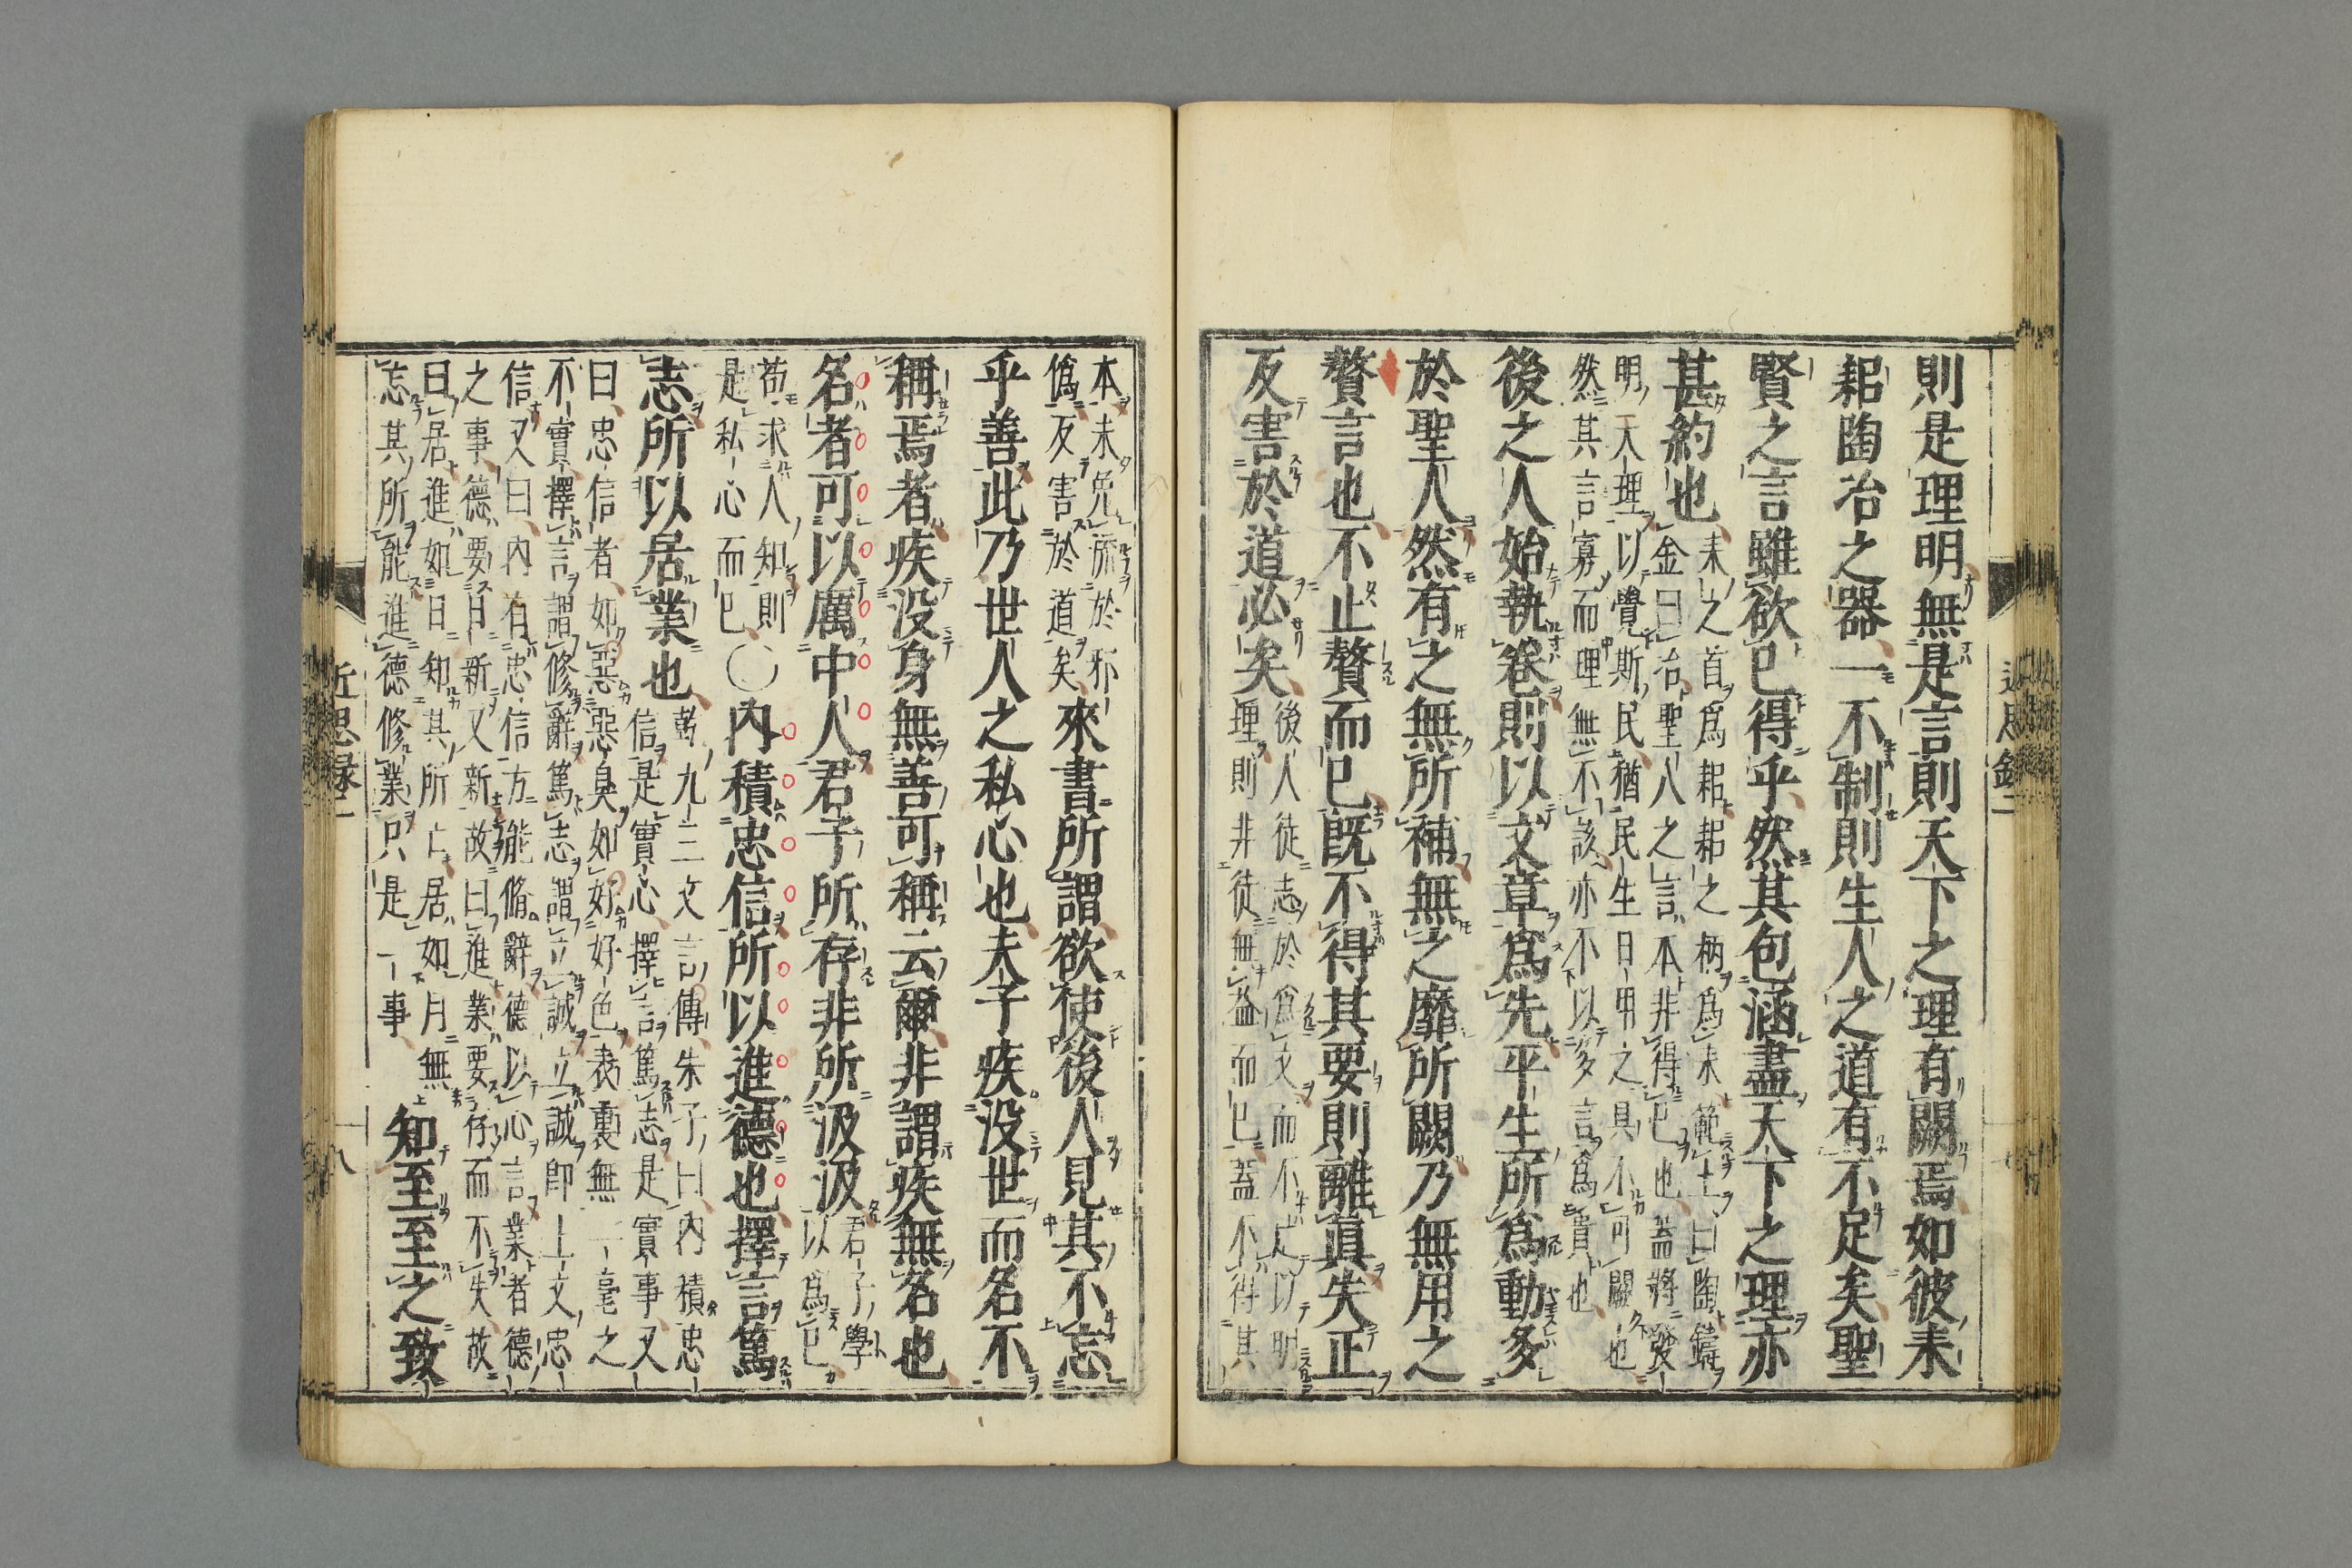 則是理明無是言則天下之理有闕焉如彼耒
耜陶冶之器一不制則生人之道有不足矣聖
賢之言雖欲已得乎然其包涵盡天下之理亦
甚約也
耒之首爲耜耜之柄爲耒範土曰陶鑄
金曰冶聖人之言本非得已也蓋將發
明天理以覺斯民猶民生日用之具不可闕也
然其言寡而理無不該亦不以多言爲貴也
後之人始執卷則以文章爲先平生所爲動多
於聖人然有之無所補無之靡所闕乃無用之
贅言也不止贅而已既不得其要則離眞失正
反害於道必矣
後人徒志於爲文而不足以明
理則非徒無益而已蓋不得其
本未免流於邪
僞反害於道矣
來書所謂欲使後人見其不忘
乎善此乃世人之私心也夫子疾没世而名不
稱焉者疾没身無善可稱云爾非謂疾無名也
名者可以厲中人君子所存非所汲汲
君子學
以爲已
苟求人知則
是私心而已
〇內積忠信所以進德也擇言篤
志所以居業也
乾九三文言傳朱子曰內積忠
信是實心擇言篤志是實事又
曰忠信者如惡惡臭如好好色表裏無一毫之
不實擇言謂修辭篤志謂立誠立誠卽上文忠
信又曰內有忠信方能脩辭德以心言業者德
之事德要日新又新故曰進業要存而不失故
曰居進如日知其所亡居如月無
忘其所能進德修業只是一事
知至至之致
近思錄二
近思録二
十八